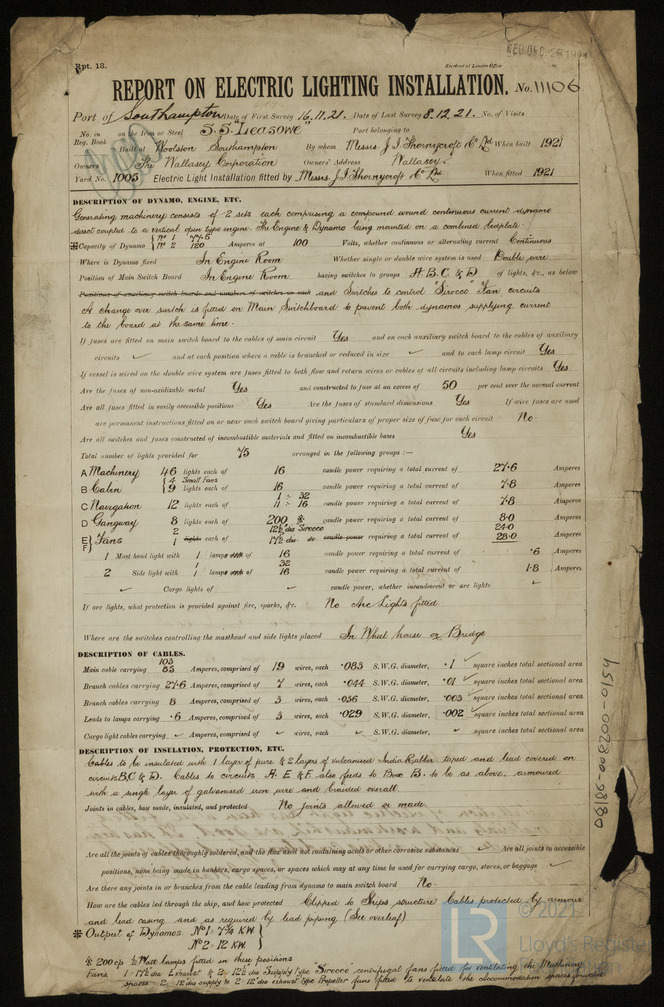 Rpt. 13.
Received at London Office
REPORT ON ELECTRIC LIGHTING INSTALLATION. No. 11106
Port of Southampton Date of First Survey 16.11.21. Date of Last Survey 8.12.21. No. of Visits
No. in Reg. Book on the Iron or Steel S.S. "Leasowe" Port belonging to
Built at Woolston Southampton By whom Messrs. J.I. Thornycroft & Co Ltd When built 1921
Owners The Wallasey Corporation Owners' Address Wallasey.
Yard No. 1003 Electric Light Installation fitted by Messrs. J.I. Thornycroft & Co Ltd When fitted 1921
DESCRIPTION OF DYNAMO, ENGINE, ETC.
Generating machinery consists of 2 sets each comprising a compound wound continuous current dynamo
direct coupled to a vertical open type engine. The Engine & Dynamo being mounted on a combined bedplate.
Capacity of Dynamo No 1 77.5 No 2 120 Amperes at 100 Volts, whether continuous or alternating current Continuous
Where is Dynamo fixed In Engine Room Whether single or double wire system is used Double wire
Position of Main Switch Board In Engine Room having switches to groups A. B. C & D of lights, &c., as below
Positions of auxiliary switch boards and numbers of switches on each and Switches to control "Sirocco" Fan circuits
A change over switch is fitted on Main Switchboard to prevent both dynamos supplying current
to the board at the same time.
If fuses are fitted on main switch board to the cables of main circuit Yes and on each auxiliary switch board to the cables of auxiliary
circuits ✓ and at each position where a cable is branched or reduced in size ✓ and to each lamp circuit Yes
If vessel is wired on the double wire system are fuses fitted to both flow and return wires or cables of all circuits including lamp circuits Yes
Are the fuses of non-oxidizable metal Yes and constructed to fuse at an excess of 50 per cent over the normal current
Are all fuses fitted in easily accessible positions Yes Are the fuses of standard dimensions Yes If wire fuses are used
are permanent instructions fitted on or near each switch board giving particulars of proper size of fuse for each circuit No.
Are all switches and fuses constructed of incombustible materials and fitted on incombustible bases Yes
Total number of lights provided for 75 arranged in the following groups :—
A Machinery 46 lights each of 16 candle power requiring a total current of 27.6 Amperes
B Cabin 4 Small Fans 9 lights each of 16 candle power requiring a total current of 7.8 Amperes
C Navigation 12 lights each of 1 : 32 11 : 16 candle power requiring a total current of 7.8 Amperes
D Gangway 8 lights each of 200 candle power requiring a total current of 8.0 Amperes
E F Fans 2 1 lights each of 12½ dia Sirocco 17½ dia do candle power requiring a total current of 24.0 28.0 Amperes
1 Mast head light with 1 lamps each of 16 candle power requiring a total current of .6 Amperes
2 Side light with 1 lamps each of 32 16 candle power requiring a total current of 1.8 Amperes
✓ Cargo lights of ✓ candle power, whether incandescent or arc lights ✓
If arc lights, what protection is provided against fire, sparks, &c. No Arc Lights fitted.
Where are the switches controlling the masthead and side lights placed In Wheel house on Bridge
DESCRIPTION OF CABLES.
Main cable carrying 103 83 Amperes, comprised of 19 wires, each .083 S.W.G. diameter, .1 square inches total sectional area
Branch cables carrying 27.6 Amperes, comprised of 7 wires, each .044 S.W.G. diameter, .01 square inches total sectional area
Branch cables carrying 8 Amperes, comprised of 3 wires, each .036 S.W.G. diameter, .003 square inches total sectional area
Leads to lamps carrying .6 Amperes, comprised of 3 wires, each .029 S.W.G. diameter, .002 square inches total sectional area
Cargo light cables carrying ✓ Amperes, comprised of ✓ wires, each ✓ S.W.G. diameter, ✓ square inches total sectional area
DESCRIPTION OF INSULATION, PROTECTION, ETC.
Cables to be insulated with 1 layer of pure & 2 layers of vulcanised India Rubber taped and lead covered on
circuits B C & D. Cables to circuits A. E & F. also feeds to Box B. to be as above, armoured
with a single layer of galvanised iron wire and braided overall.
Joints in cables, how made, insulated, and protected No joints allowed or made.
Are all the joints of cables thoroughly soldered, and the flux used not containing acids or other corrosive substances Are all joints in accessible
positions, none being made in bunkers, cargo spaces, or spaces which may at any time be used for carrying cargo, stores, or baggage ✓
Are there any joints in or branches from the cable leading from dynamo to main switch board No.
How are the cables led through the ship, and how protected Clipped to Ships structure. Cables protected by armour
and lead casing and as required by lead piping (See overleaf)
Output of Dynamos. No 1: 7¾ K.W.
No 2: 12 K.W.
200 cp ½ Watt lamps fitted in these positions
Fans 1 : 17½ dia Exhaust & 2 : 12½ dia Supply type "Sirocco" centrifugal fans fitted for ventilating the Machinery
spaces 2 : 12 dia supply to 2 : 12 dia exhaust type Propeller fans fitted to ventilate the accommodation spaces forward
LR
© 2021
Lloyd's Register